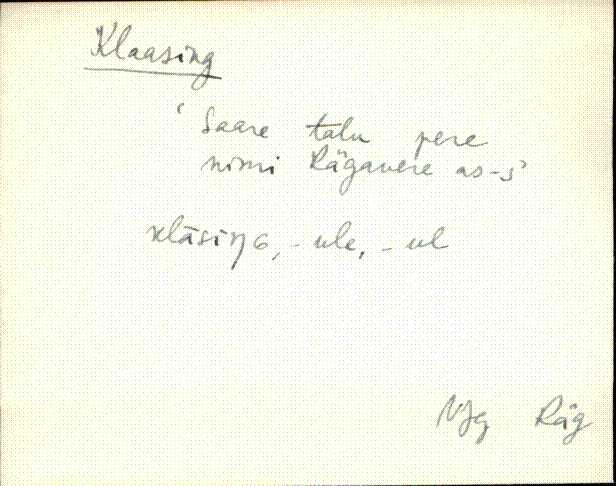 Klaasing
‘ Saare talu pere
nimi Rägavere as-s’
klāsiŋɢ, -ule, -ul
VJg Räg